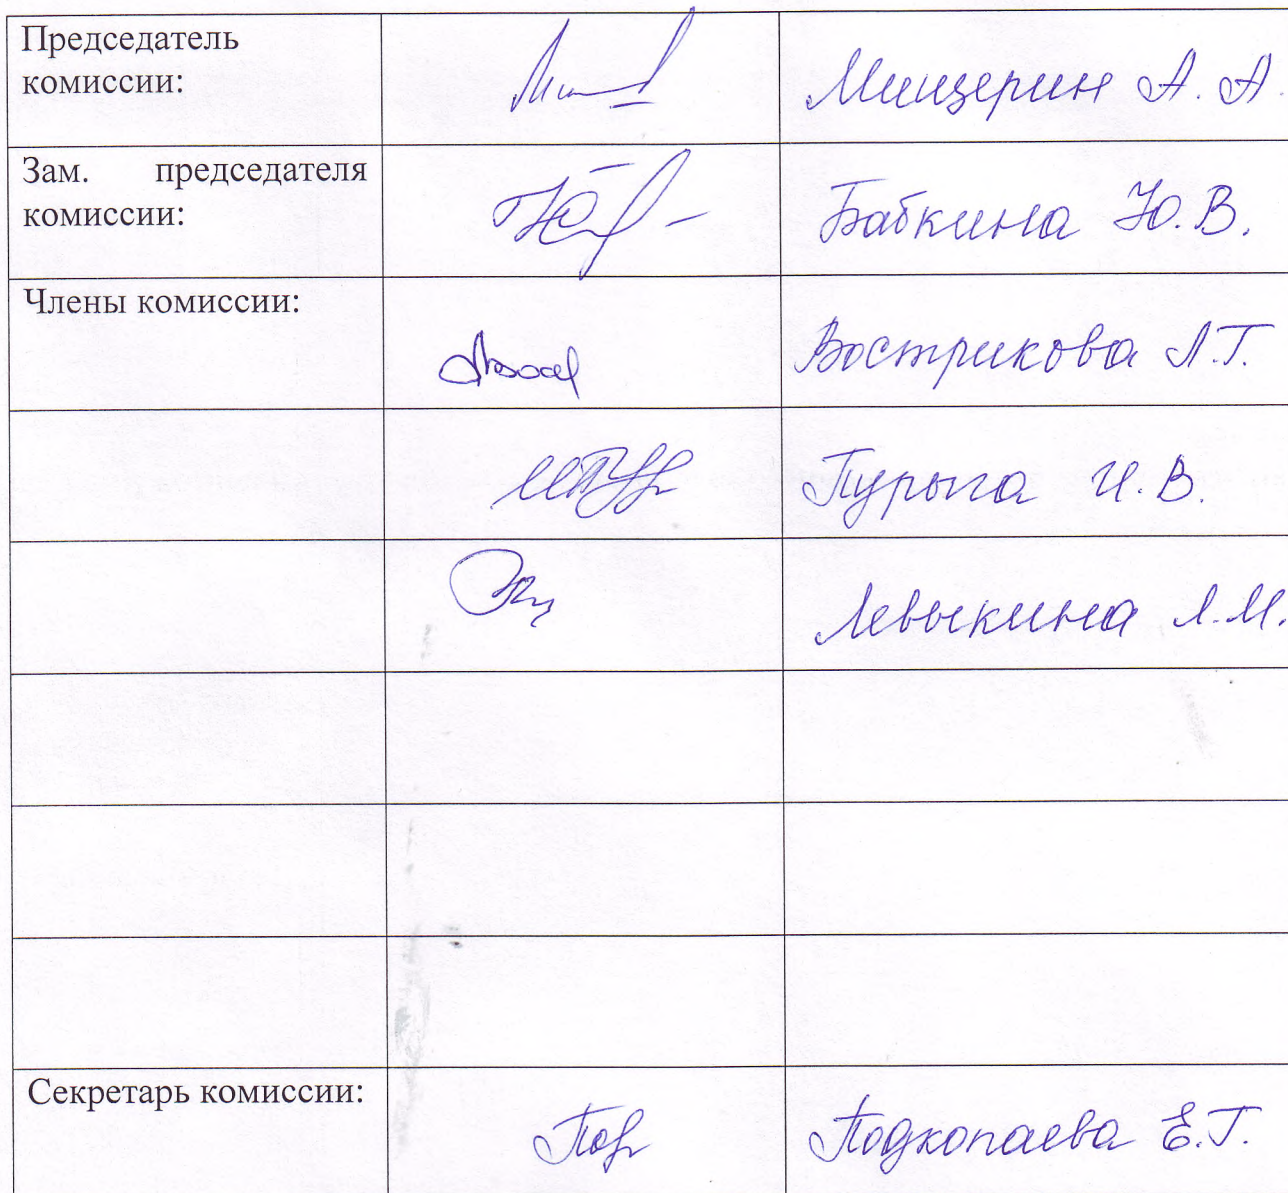 Председатель
комиссии:
Мищерин А. А.
Зам. председателя
комиссии:
Бабкина Ю. В.
Члены комиссии:
Вострикова Л.Г.
Пурыга И. В.
Левыкина Л.М.
Секретарь комиссии:
Подкопаева Е.Г.